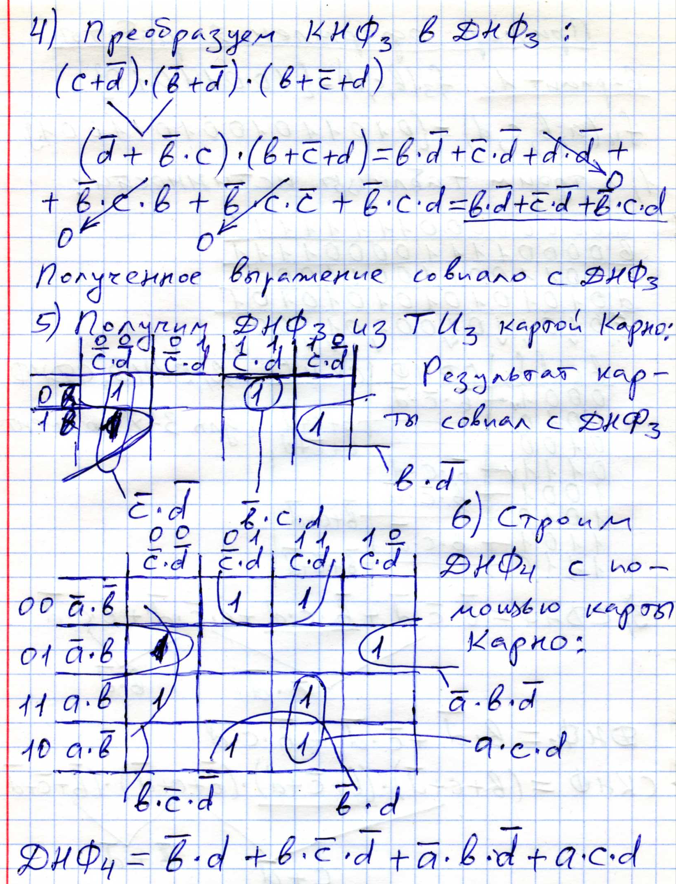 4) Преобразуем КНФ₃ в ДНФ₃:
(c+d̅)·(b̅+d̅)·(b+c̅+d)
(d̅+b̅·c)·(b+c̅+d)=b·d̅+c̅·d̅+d·d̅+
0
+b̅·c·b+b̅·c·c̅+b̅·c·d=b·d̅+c̅·d̅+b̅·c·d
0 0
Полученное выражение совпало с ДНФ₃
5) Получим ДНФ₃ из ТИ₃ картой Карно:
0 0 0 1 1 1 1 0
c̅·d̅ c̅·d c·d c·d̅
0 b̅ 1 1
1 b 1 1
Результат кар-
ты совпал с ДНФ₃
b·d̅
c̅·d̅ b̅·c·d
6) Строим
ДНФ₄ с по-
мощью карты
Карно:
0 0 0 1 1 1 1 0
c̅·d̅ c̅·d c·d c·d̅
00 a̅·b̅ 1 1
01 a̅·b 1 1
11 a·b 1 1
10 a·b̅ 1 1
a̅·b·d̅
a·c·d
b·c̅·d̅ b̅·d
ДНФ₄=b̅·d+b·c̅·d̅+a̅·b·d̅+a·c·d